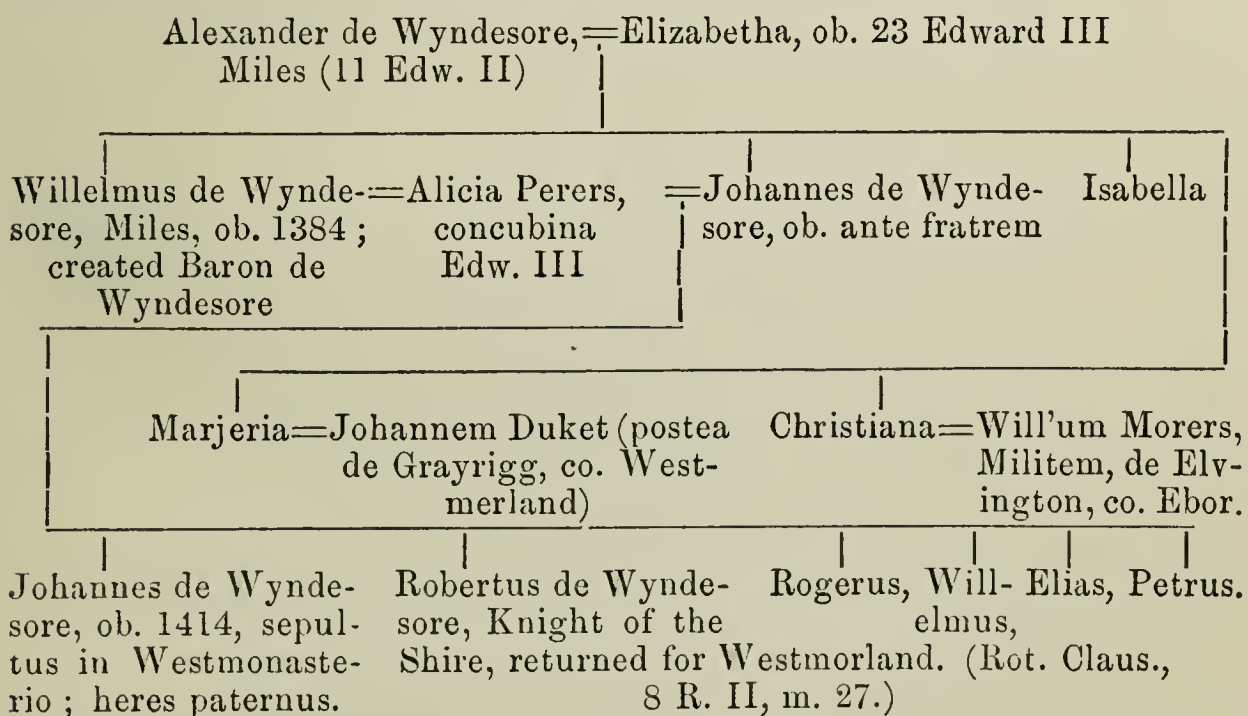 Alexander de Wyndesore,=Elizabetha, ob. 23 Edward III
Miles (11 Edw. II)
Willelmus de Wynde-=Alicia Perers,
sore, Miles, ob. 1384 ;
concubina
created Baron de
Edw. III
Wyndesore
=Johannes de Wynde-
sore, ob. ante fratrem
Isabella
Marjeria=Johannem Duket (postea
de Grayrigg, co. West-
merland)
Christiana=Will'um Morers,
Militem, de Elv-
ington, co. Ebor.
Johannes de Wynde-
sore, ob. 1414, sepul-
tus in Westmonaste-
rio ; heres paternus.
Robertus de Wynde-
sore, Knight of the
Shire, returned for Westmorland. (Rot. Claus.,
8 R. II, m. 27.)
Rogerus, Will- Elias, Petrus.
elmus,